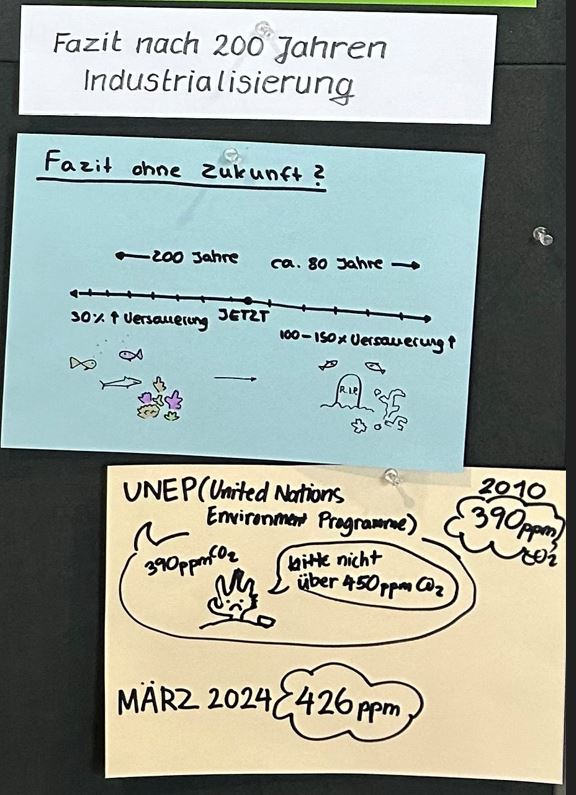 Fazit nach 200 Jahren
Industrialisierung
Fazit ohne Zukunft?
200 Jahre
ca. 80 Jahre
30% ↑ Versauerung
JETZT
100-150% Versauerung ↑
R.I.P
UNEP (United Nations
Environment Programme)
2010
390 ppm
CO2
390 ppm CO2
bitte nicht
über 450 ppm CO2
MÄRZ 2024 426 ppm